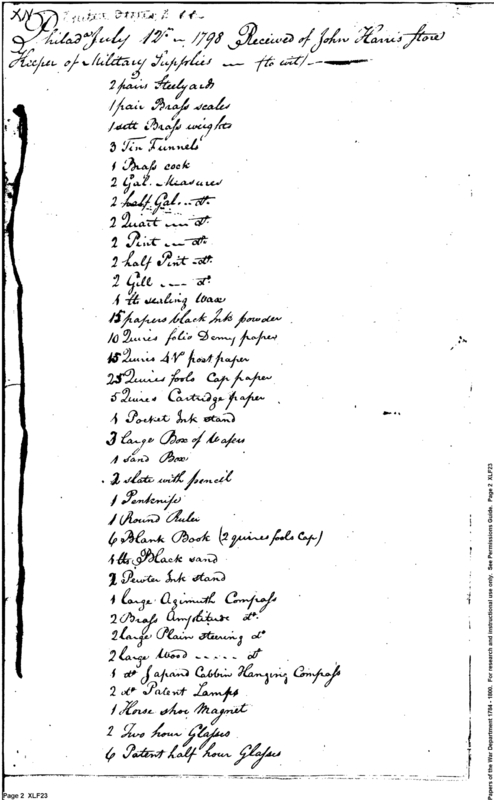 XIV
Philada July 12th 1798 Received of John Harris Store
Keeper of Military Supplies — (to wit) —
2 pairs Steelyards
1 pair Brass scales
1 sett Brass weights
3 Tin Funnels
1 Brass cock
2 Gal. Measures
2 half Gal... do.
2 Quart — do.
2 Pint — do.
2 half Pint do.
2 Gill — do.
1 lb sealing wax
15 papers black Ink powder
10 Quires folio Demy paper
15 Quires 4to post paper
25 Quires fools Cap paper
5 Quires Cartridge paper
1 Pocket Ink stand
3 large Box of Wafers
1 sand Box
2 slate with pencil
1 Penknife
1 Round Ruler
6 Blank Book (2 quires fools Cap)
1 lb Black sand
2 Pewter Ink stand
1 large Azimuth Compass
2 Brass Amplitude do.
2 large Plain steering do
2 large Wood ..... do
1 do Japand Cabbin Hanging Compass
2 do Patent Lamps
1 Horse shoe Magnet
2 Two hour Glasses
6 Patent half hour Glasses
Page 2 XLF23
Papers of the War Department 1784 - 1800. For research and instructional use only. See Permissions Guide. Page 2 XLF23